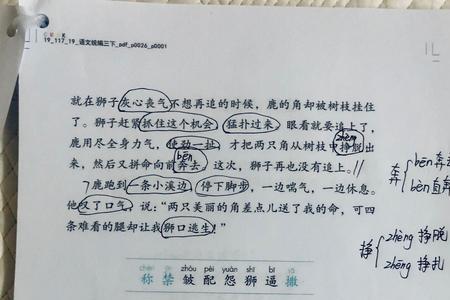 19_117_19_语文统编三下_pdf_p0026_p0001
就在狮子灰心丧气不想再追的时候，鹿的角却被树枝挂住
了。狮子赶紧抓住这个机会，猛扑过来。眼看就要追上了，
zhèng
鹿用尽全身力气，使劲一扯，才把两只角从树枝中挣脱出
bēn
来，然后又拼命向前奔去。这次，狮子再也没有追上。//
7 鹿跑到一条小溪边，停下脚步，一边喘气，一边休息。
他叹了口气，说：“两只美丽的角差点儿送了我的命，可四
条难看的腿却让我狮口逃生！”
奔
bēn 奔
bèn 直奔
挣
zhèng 挣脱
zhēng 挣扎
zhòu pèi yuàn shī bī
称 禁 皱 配 怨 狮 逼 撒